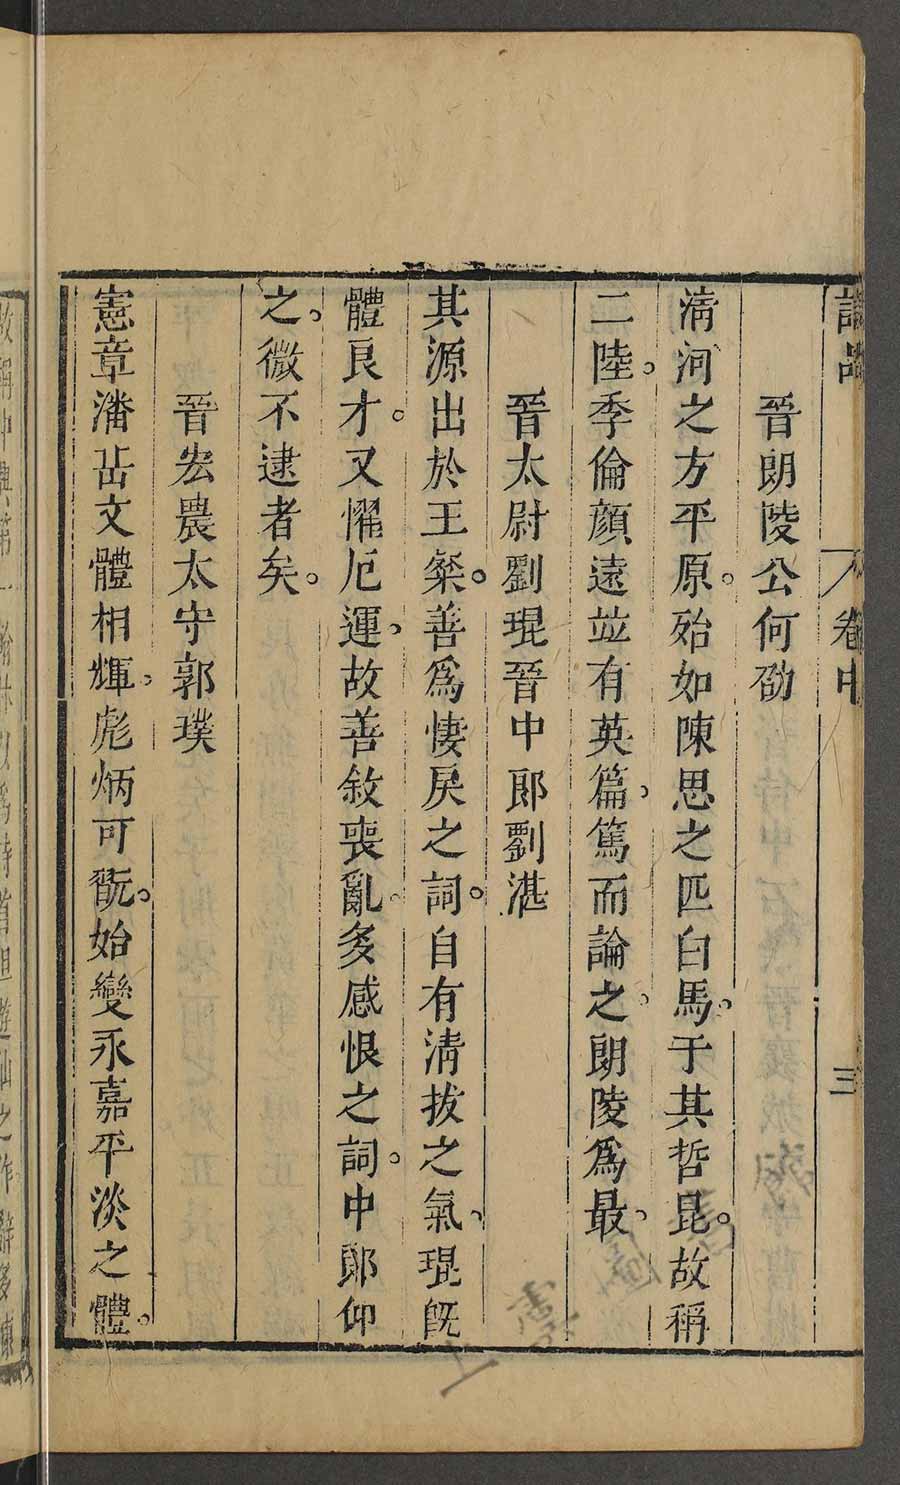 詩品 卷中 三
晉朗陵公何劭
淸河之方平原。殆如陳思之匹白馬。于其哲昆。故稱
二陸。季倫顏遠並有英篇。篤而論之。朗陵爲最。
晉太尉劉琨晉中郎劉湛
其源出於王粲。善爲悽戾之詞。自有淸拔之氣。琨旣
體良才。又懼厄運。故善敘喪亂。多感恨之詞。中郎仰
之。微不逮者矣。
晉宏農太守郭璞
憲章潘岳文體相輝。彪炳可翫。始變永嘉平淡之體。